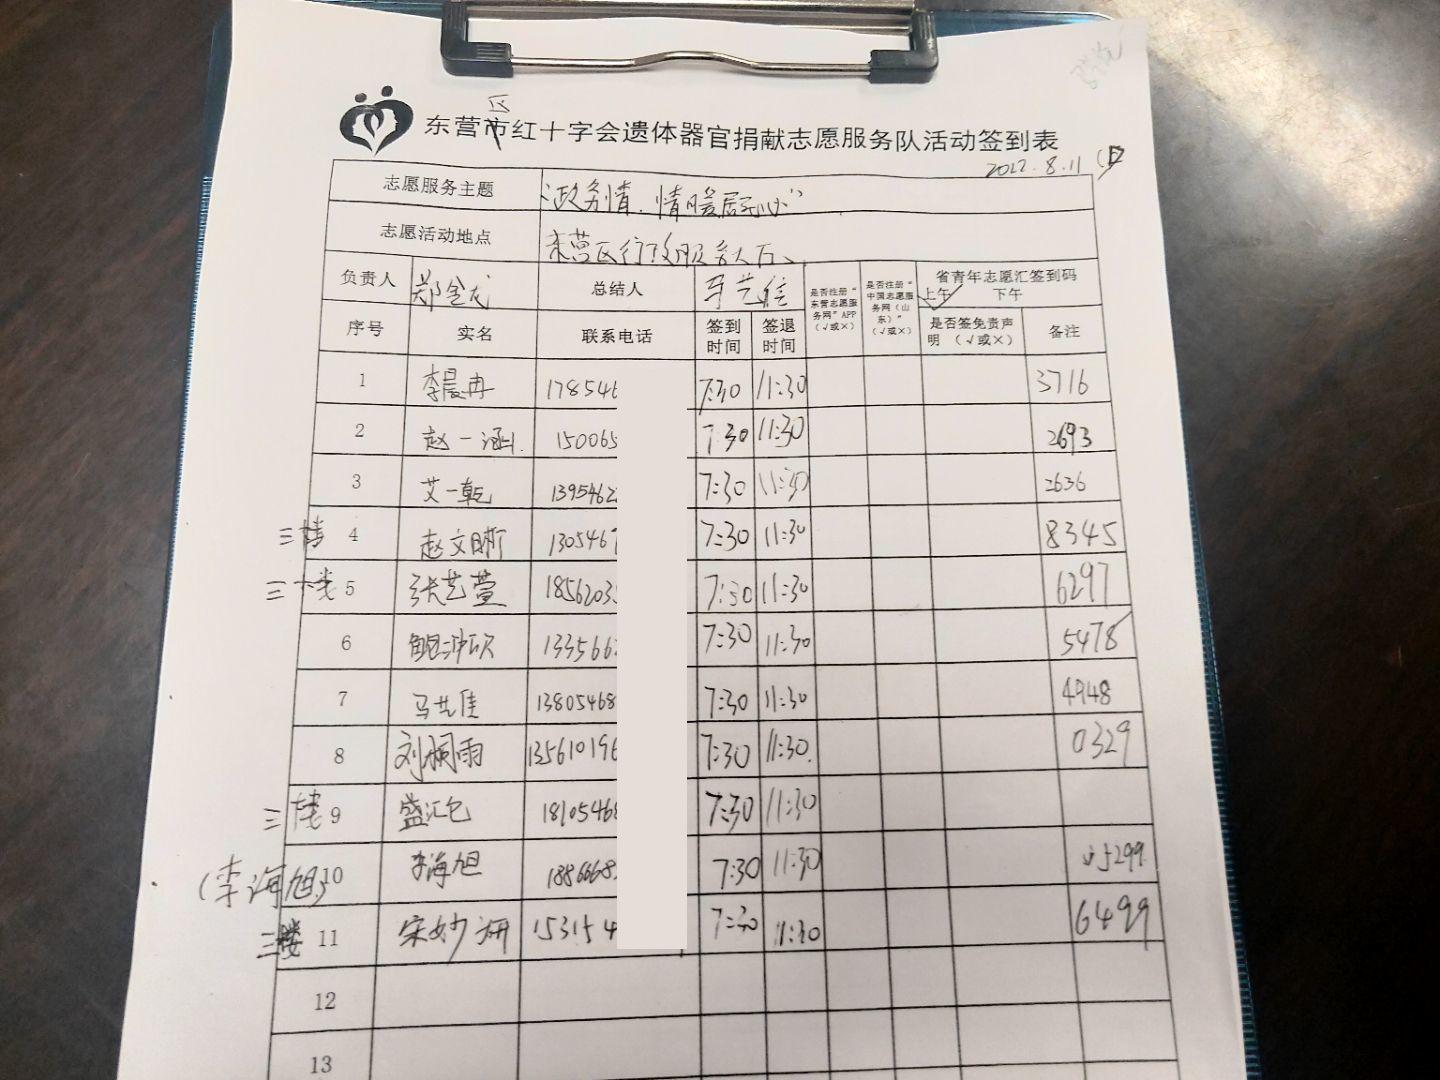 区
东营市红十字会遗体器官捐献志愿服务队活动签到表
2022.8.11
志愿服务主题 "政务情.情暖居民心"
志愿活动地点 东营区行政服务大厅
负责人 郑金戈 总结人 是否注册“东营志愿服务网”APP（√或×） 是否注册“中国志愿服务网（山东）”（√或×） 省青年志愿汇签到码 上午✓ 下午
序号 实名 联系电话 签到时间 签退时间 是否签免责声明（√或×） 备注
1 李晨冉 178546 7:30 11:30 3716
2 赵一涵 150065 7:30 11:30 2693
3 艾一乾 1395462 7:30 11:30 2636
三楼 4 赵文晰 1305467 7:30 11:30 8345
三楼 5 张艺萱 1856203 7:30 11:30 6297
6 133566 7:30 11:30 5478
7 马艺佳 13805468 7:30 11:30 4948
8 刘桐雨 135610196 7:30 11:30 0329
三楼 9 盛汇 18105468 7:30 11:30
(李海旭) 10 李海旭 1886668 7:30 11:30 5299
三楼 11 宋妙妍 153154 7:30 11:30 6499
12
13